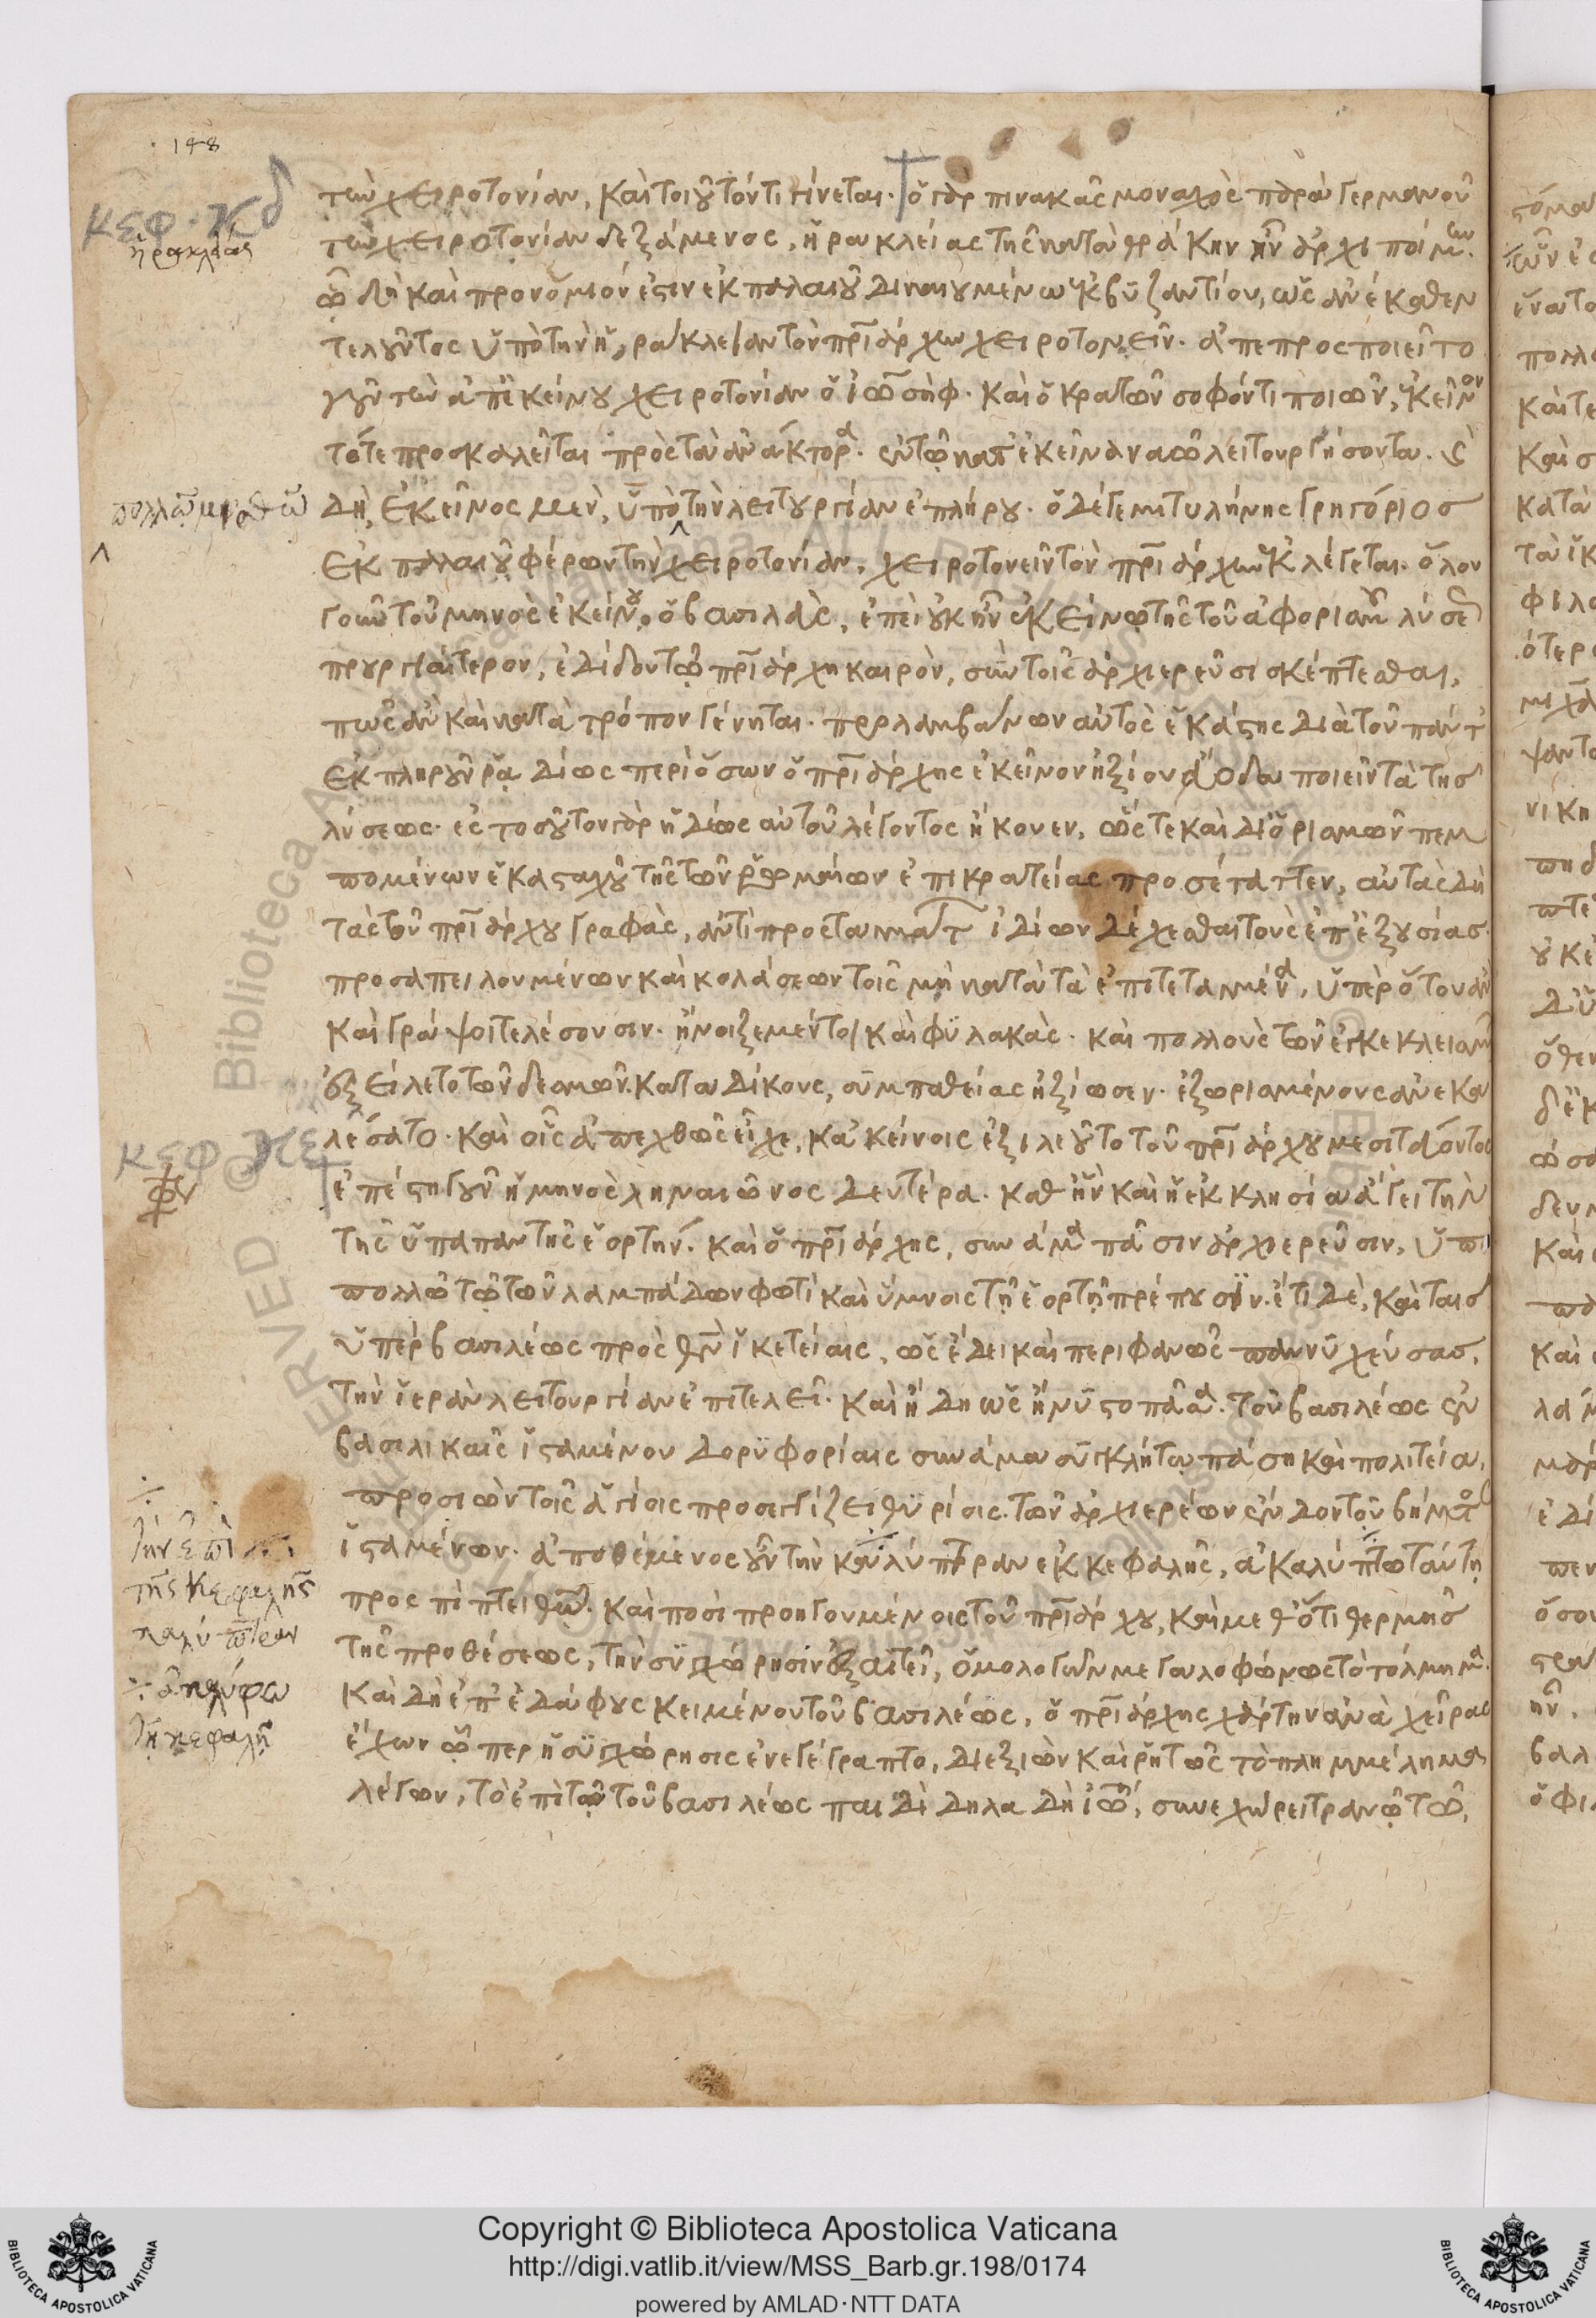 148
τὴν χειροτονίαν, καὶ τοιοῦτόν τι γίνεται. ὁ γὰρ πινακᾶς μοναχὸς παρὰ γερμανοῦ
κεφ. κδ
ἡρακλείας
τὴν χειροτονίαν δεξάμενος, ἡρακλείας τῆς κατὰ θράκην ἦν ἀρχιποίμην.
ᾧ δὴ καὶ προνόμιόν ἐστιν ἐκ παλαιοῦ δικαιουμένω κ βυζαντίου, ὡς ἀνέκαθεν
τελοῦντος ὑπὸ τὴν ἡράκλειαν τὸν πριάρχην χειροτονεῖν. ἀπεπροσποιεῖτο
γοῦν τὴν ἀπ' ἐκείνου χειροτονίαν ὁ ἰωσὴφ. καὶ ὁ κρατῶν σοφόν τι ποιῶν, κεῖνον
τότε προσκαλεῖται πρὸς τὰ ἀνάκτορα. ἐν τῷ κατ' ἐκεῖνα ναῷ λειτουργήσοντα.
πολλῶ μισθῶ
δὴ, ἐκεῖνος μὲν, ὑπὸ τὴν λειτουργίαν ἐπλήρου. ὁ δέ γε μιτυλήνης γρηγόριος
ἐκ παλαιοῦ φέρων τὴν χειροτονίαν, χειροτονεῖν τὸν πριάρχην κλέγεται. ὅλον
γοῦν τοῦ μηνὸς ἐκείνου, ὁ βασιλεὺς, ἐπεὶ οὐκ ἦν ἐκείνῳ τῆς τοῦ ἀφορισμοῦ λύσεως
προυργιαίτερον, ἐδίδου τῷ πριάρχη καιρὸν, σὺν τοῖς ἀρχιερεῦσι σκέπτεσθαι,
πῶς ἂν καὶ κατὰ τρόπον γένηται. προλαμβάνων αὐτὸς ἑκάστης διὰ τοῦ παντ
ἐκπληροῦν ῥαδίως περὶ ὅσων ὁ πριάρχης ἐκεῖνον ἠξίου ποιεῖν τὰ τῆς
λύσεως. ἐς τοσοῦτον γὰρ ἡδέως αὐτοῦ λέγοντος ἤκουεν, ὥστε καὶ διορισμῶν πεμ
πομένων ἑκασταχοῦ τῆς τῶν ῥωμαίων ἐπικρατείας προσέταττεν, αὐτὰς δὴ
τὰς τοῦ πριάρχου γραφὰς, ἀντὶ προσταγμάτ ἰδίων δέχεσθαι τοὺς ἐπ' ἐξουσίας.
προσαπειλουμένων καὶ κολάσεων τοῖς μὴ κατὰ τὰ ἐπιτεταγμένα, ὑπὲρ ὅτου ἂν
καὶ γράψοι τελέσουσιν. ἤνοιξε μέντοι καὶ φυλακὰς. καὶ πολλοὺς τῶν ἐγκεκλεισμ
ἐξείλετο τῶν δεσμῶν. καταδίκους, συμπαθείας ἠξίωσεν. ἐξωρισμένους ἀνεκα
λέσατο. καὶ οἷς ἀπεχθῶς εἶχε, κακείνοις ἐξιλεοῦτο τοῦ πριάρχου μεσιτεύοντος
κεφ κε
ἐπέστη γοῦν ἡ μηνὸς ληναιῶνος δευτέρα. καθ' ἣν καὶ ἡ ἐκκλησία ἄγει τὴν
τῆς ὑπαπαντῆς ἑορτήν. καὶ ὁ πριάρχης, συνάμα πᾶσιν ἀρχιερεῦσιν, ὑπὸ
πολλῷ τῷ τῶν λαμπάδων φωτὶ καὶ ὕμνοις τῇ ἑορτῇ πρέπουσιν. ἔτι δὲ, καὶ ταῖς
ὑπὲρ βασιλέως πρὸς θν ἱκετείαις, ὡς ἔδει καὶ περιφανῶς παννυχεύσας,
τὴν ἱερὰν λειτουργίαν ἐπιτελεῖ. καὶ ἤδη ὡς ἤνυστο πᾶσα. τοῦ βασιλέως ἐν
βασιλικαῖς ἱσταμένου δορυφορίαις συνάμα συγκλήτῳ πάση καὶ πολιτεία,
προσιὼν τοῖς ἁγίοις προσεγγίζει θυρίσι. τῶν ἀρχιερέων ἔνδον τοῦ βήματος
ἱσταμένων. ἀποθέμενος γοῦν τὴν καλύπτραν ἐκ κεφαλῆς, ἀκαλύπτω ταύτη
τὴν ἐπὶ
τῆς κεφαλῆς
καλύπτραν
ἀκαλύφω
τῇ κεφαλῇ
προσπίπτει θῶ. καὶ ποσὶ προηγουμένοις τοῦ πριάρχου, καὶ μεθ' ὅτι θερμῆς
τῆς προθέσεως, τὴν συγχώρησιν ἐξαιτεῖ, ὁμολογῶν μεγαλοφώνως τὸ τόλμημα.
καὶ δὴ ἐπ' ἐδάφους κειμένου τοῦ βασιλέως, ὁ πριάρχης χάρτην ἀνὰ χεῖρας
ἔχων ᾧπερ ἡ συγχώρησις ἐνεγέγραπτο, διεξιὼν καὶ ῥητῶς τὸ πλημμέλημα
λέγων, τὸ ἐπὶ τῷ τοῦ βασιλέως παιδὶ δηλαδὴ ἰω, συνεχώρει τρανῷ τῷ,
Copyright © Biblioteca Apostolica Vaticana
http://digi.vatlib.it/view/MSS_Barb.gr.198/0174
powered by AMLAD·NTT DATA
BIBLIOTECA APOSTOLICA VATICANA
BIBLIOTECA APOSTOLICA VATICANA